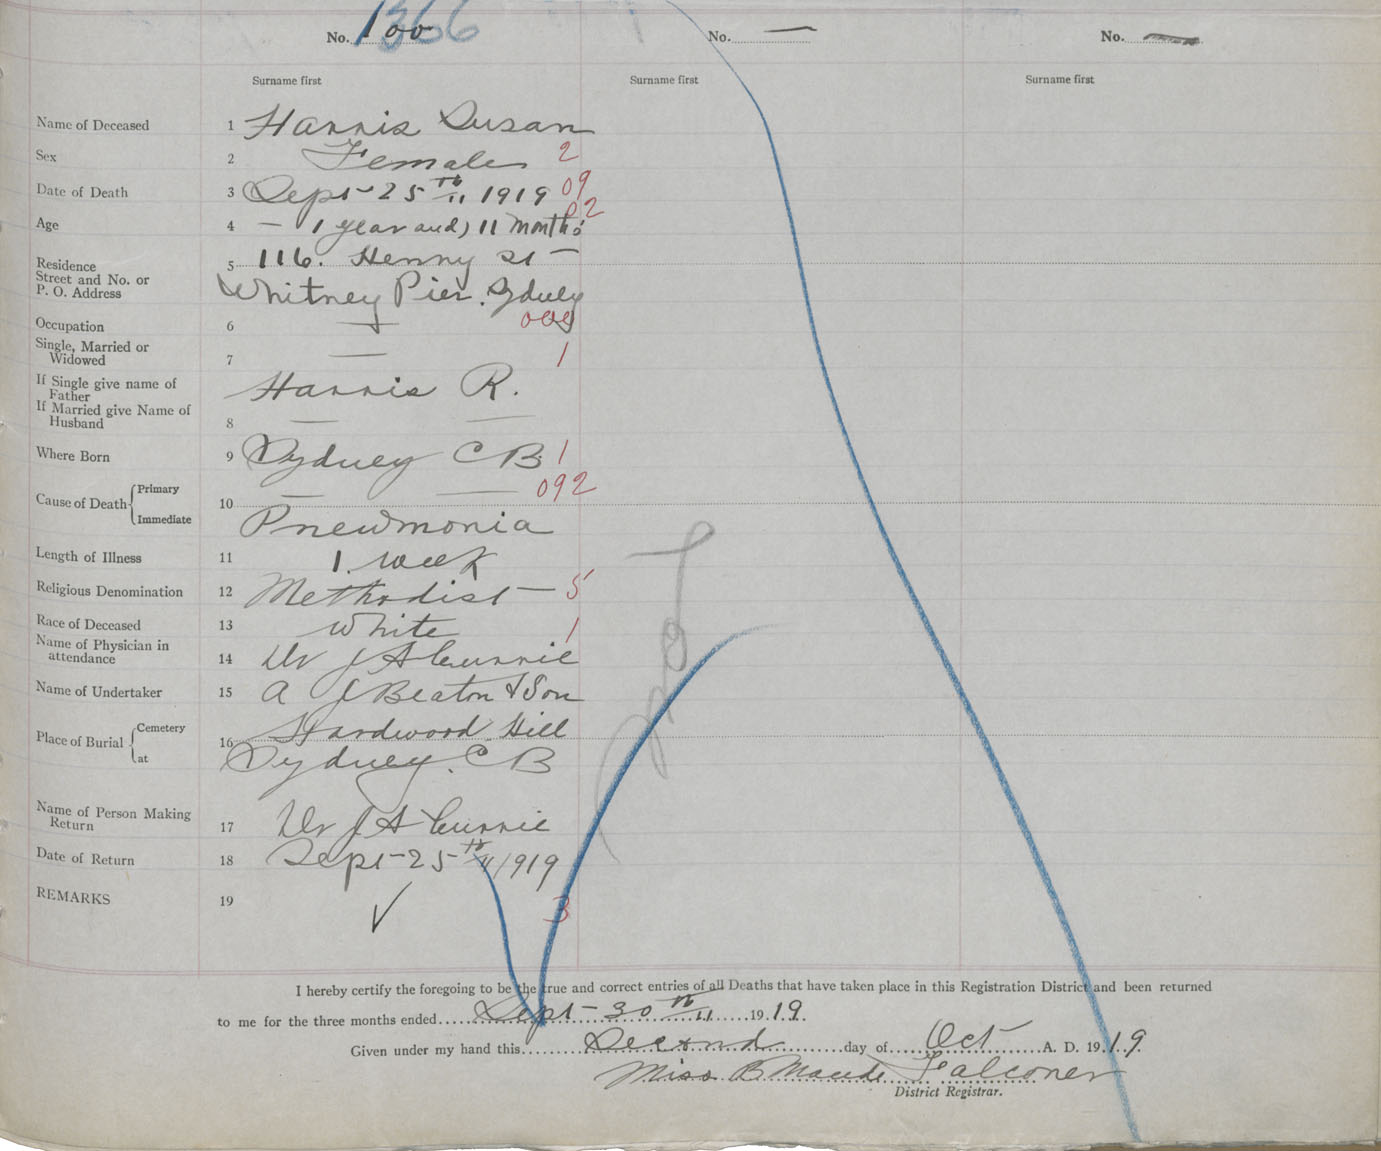 1366
No. 100
No. —
No. —
Surname first
Surname first
Surname first
Name of Deceased 1 Harris Susan
Sex 2 Female 2
Date of Death 3 Sept-25th 1919 09
02
Age 4 — 1 year and 11 months
Residence
Street and No. or
P. O. Address
5 116. Henry St —
Whitney Pier. Sydney
Occupation 6 — 000
Single, Married or
Widowed 7 — 1
If Single give name of
Father Harris R.
If Married give Name of
Husband 8 — —
Where Born 9 Sydney C B. 1
092
Cause of Death Primary 10 — —
Immediate Pnewmonia
Length of Illness 11 1. week
Religious Denomination 12 Methodist — 5
Race of Deceased 13 White 1
Name of Physician in
attendance 14 Dr J A Currie
Name of Undertaker 15 A J Beaton & Son
Place of Burial Cemetery 16 Hardwood Hill
at Sydney. C B
Name of Person Making
Return 17 Dr J A Currie
Date of Return 18 Sept-25th 1919
REMARKS 19
3
I hereby certify the foregoing to be the true and correct entries of all Deaths that have taken place in this Registration District and been returned
to me for the three months ended Sept-30th 1919.
Given under my hand this Second day of Oct A. D. 1919.
Miss B Maude Falconer
District Registrar.